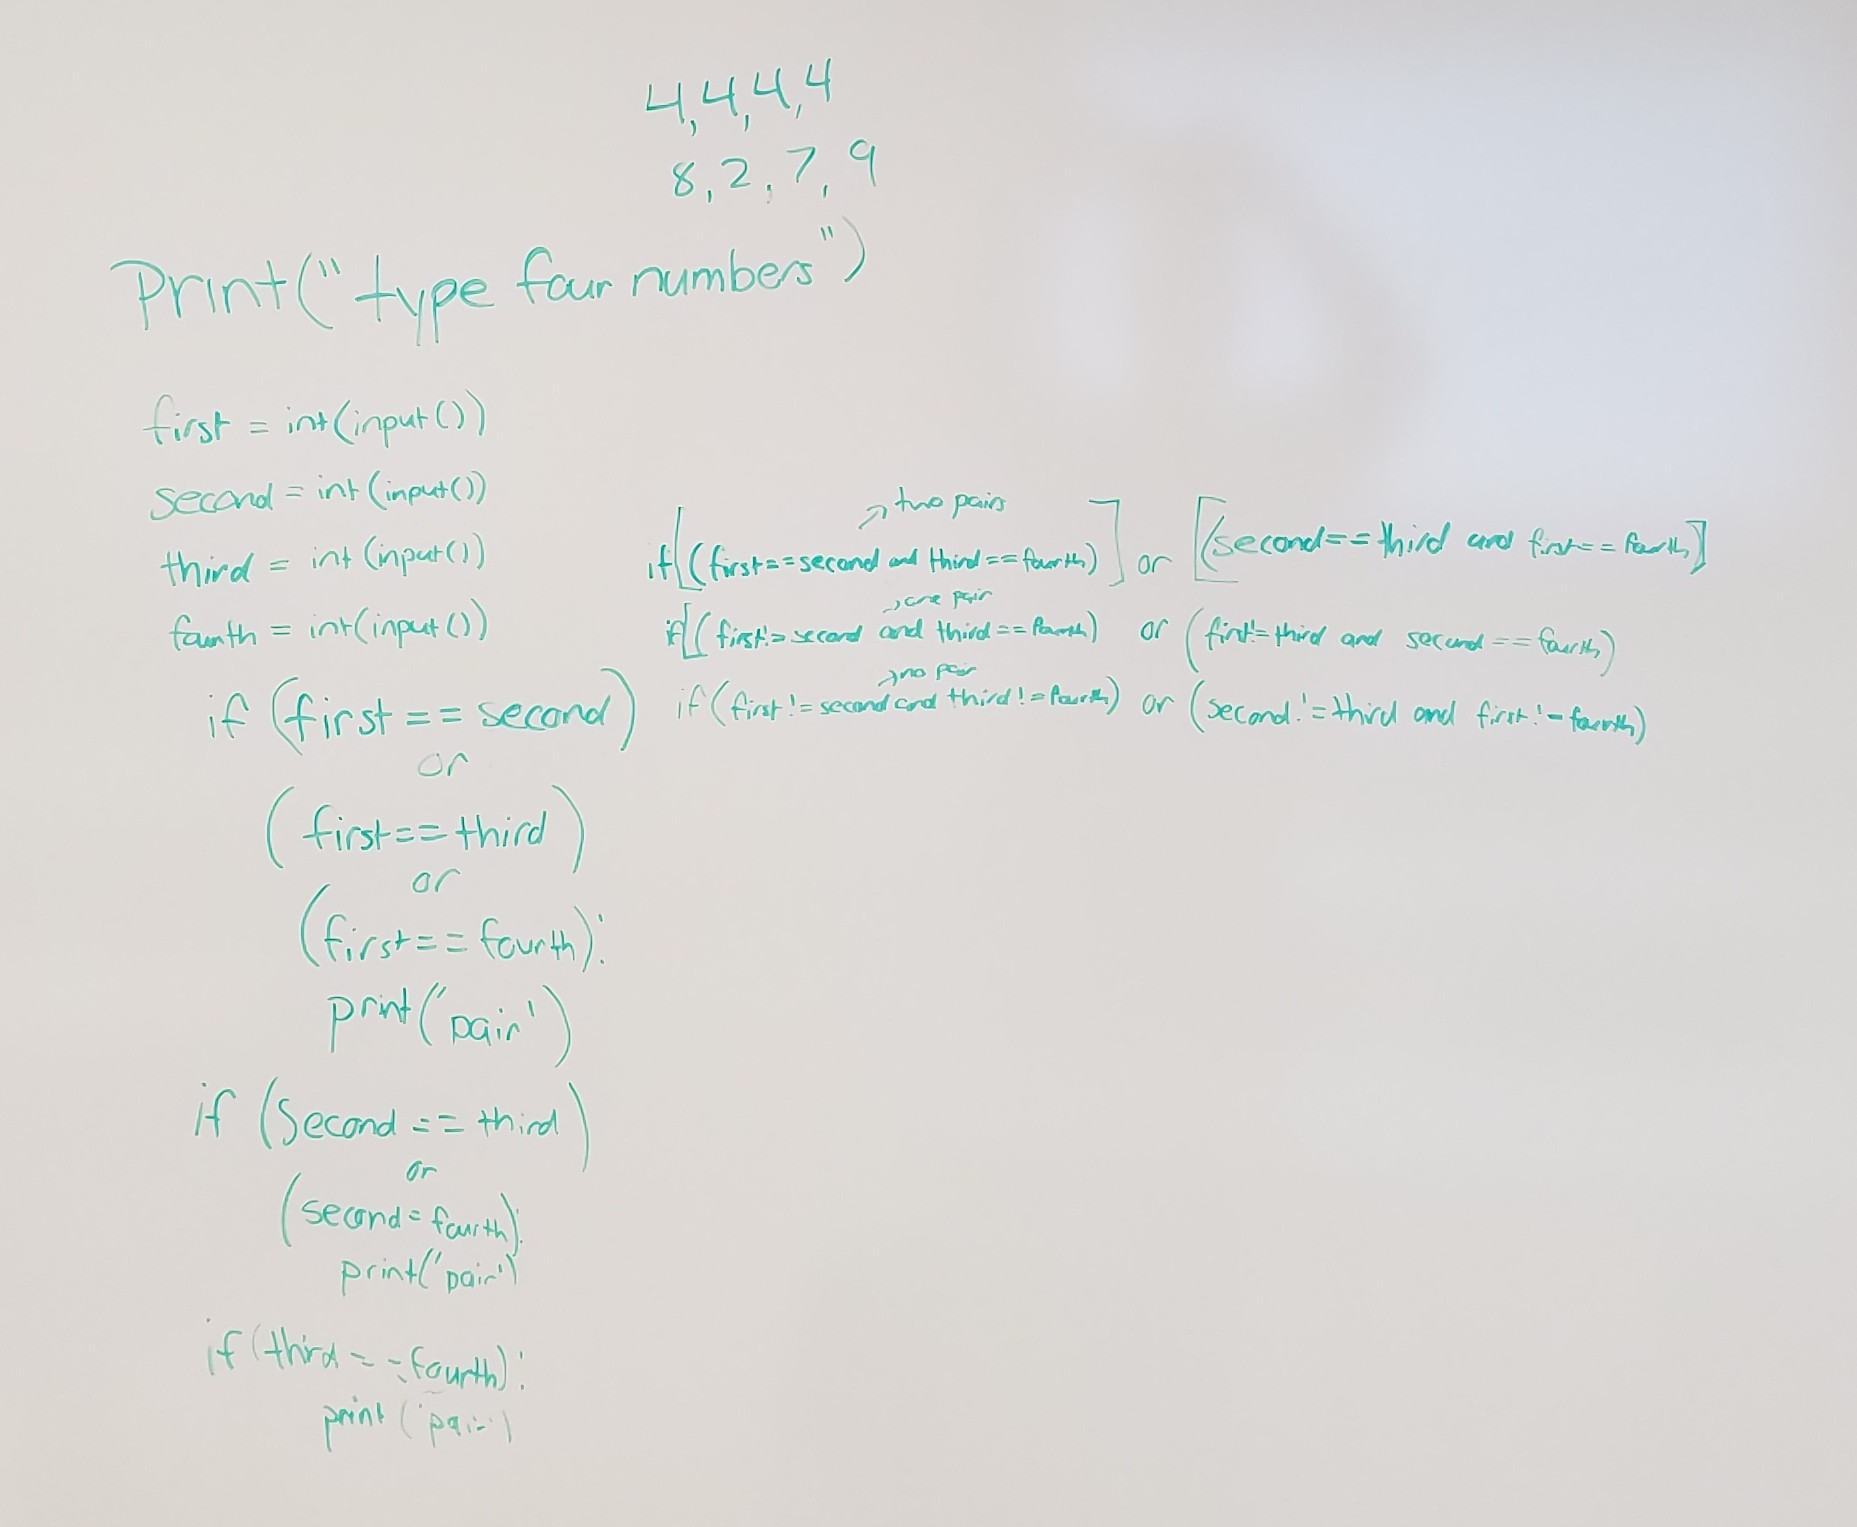 4,4,4,4
8,2,7,9
Print("type four numbers")
first = int(input())
second = int(input())
third = int(input())
fourth = int(input())
→ two pairs
if[(first==second and third==fourth)] or [(second==third and first==fourth)]
→ one pair
if[(first!=second and third==fourth) or (first!=third and second==fourth)
→ no pair
if(first!=second and third!=fourth) or (second!=third and first!=fourth)
if (first == second)
or
(first==third)
or
(first==fourth):
print('pair')
if (Second == third)
or
(second=fourth):
print('pair')
if (third==fourth):
print('pair')